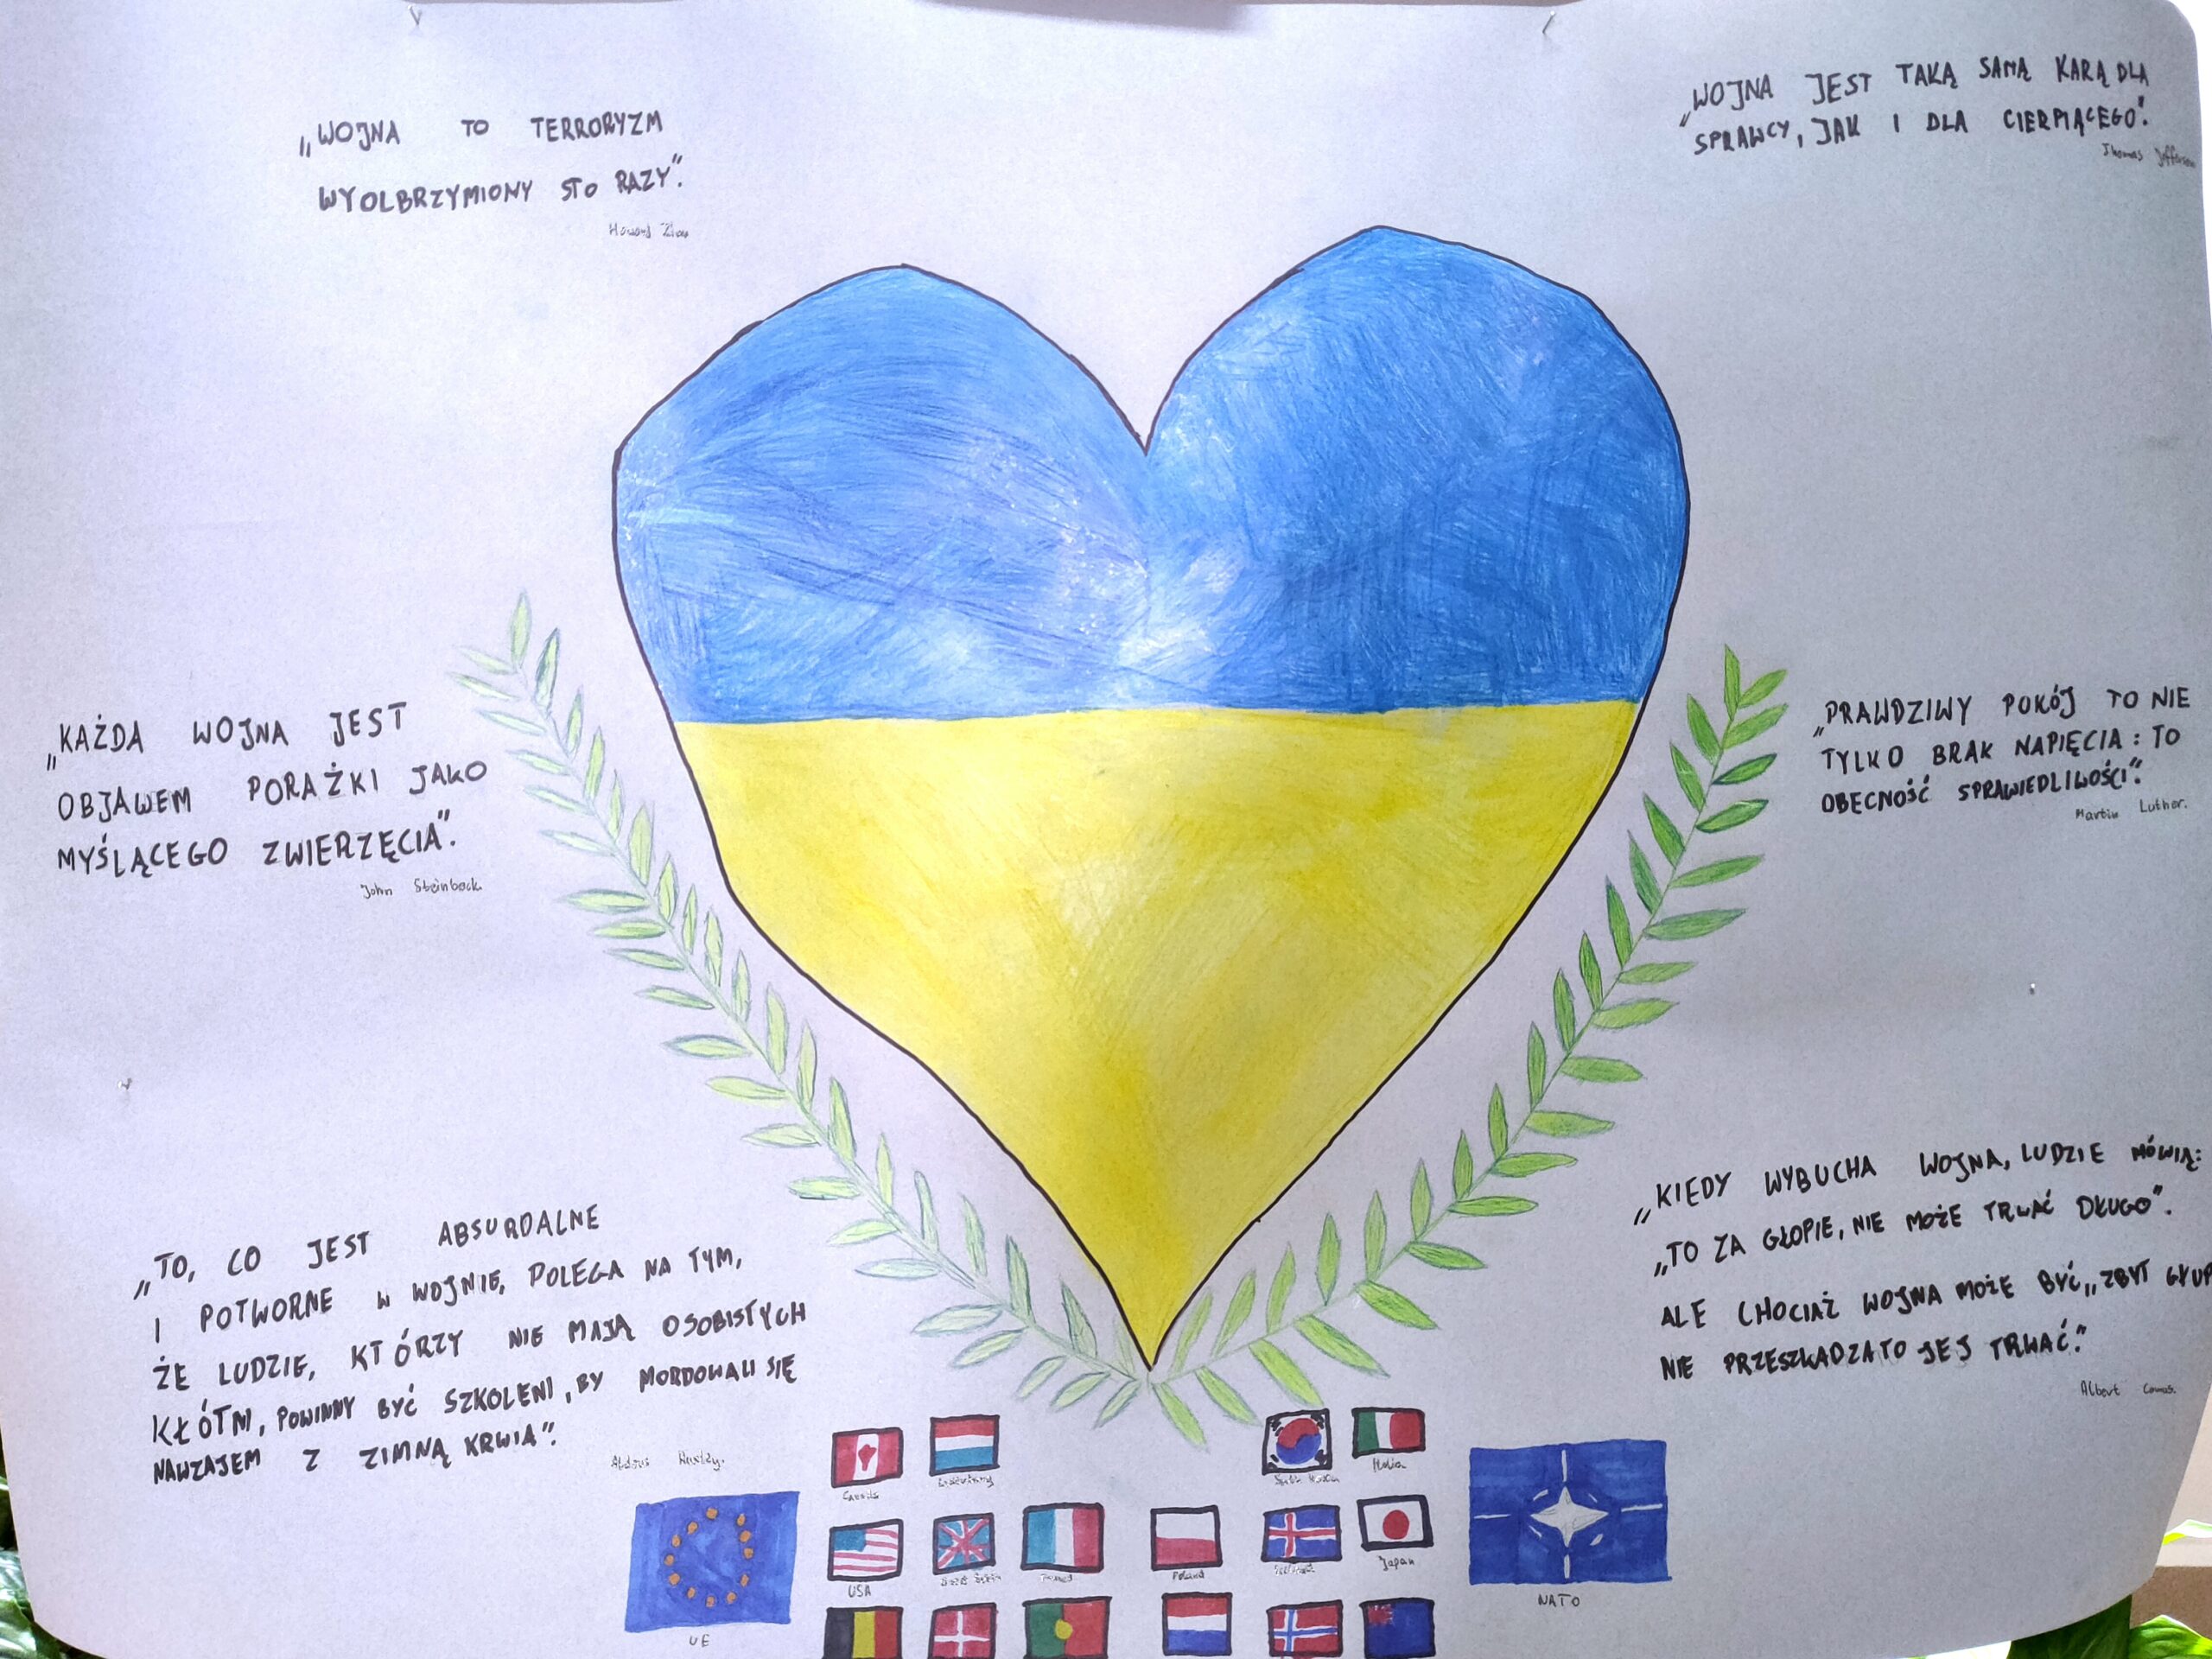 „WOJNA TO TERRORYZM
WYOLBRZYMIONY STO RAZY”.
Howard
„WOJNA JEST TAKĄ SAMĄ KARĄ DLA
SPRAWCY, JAK I DLA CIERPIĄCEGO”.
Thomas Jefferson
„KAŻDA WOJNA JEST
OBJAWEM PORAŻKI JAKO
MYŚLĄCEGO ZWIERZĘCIA”.
John Steinbeck
„PRAWDZIWY POKÓJ TO NIE
TYLKO BRAK NAPIĘCIA: TO
OBECNOŚĆ SPRAWIEDLIWOŚCI”.
Martin Luther.
„TO, CO JEST ABSURDALNE
I POTWORNE W WOJNIE, POLEGA NA TYM,
ŻE LUDZIE, KTÓRZY NIE MAJĄ OSOBISTYCH
KŁÓTNI, POWINNY BYĆ SZKOLENI, BY MORDOWALI SIĘ
NAWZAJEM Z ZIMNĄ KRWIĄ”.
„KIEDY WYBUCHA WOJNA, LUDZIE MÓWIĄ:
„TO ZA GŁOPIE, NIE MOŻE TRWAĆ DŁUGO”.
ALE CHOCIAŻ WOJNA MOŻE BYĆ „ZBYT GŁUP
NIE PRZESZKADZA TO JEJ TRWAĆ.”
Albert Camus
Canada
South Korea
Italia
USA
Poland
Japan
UE
NATO